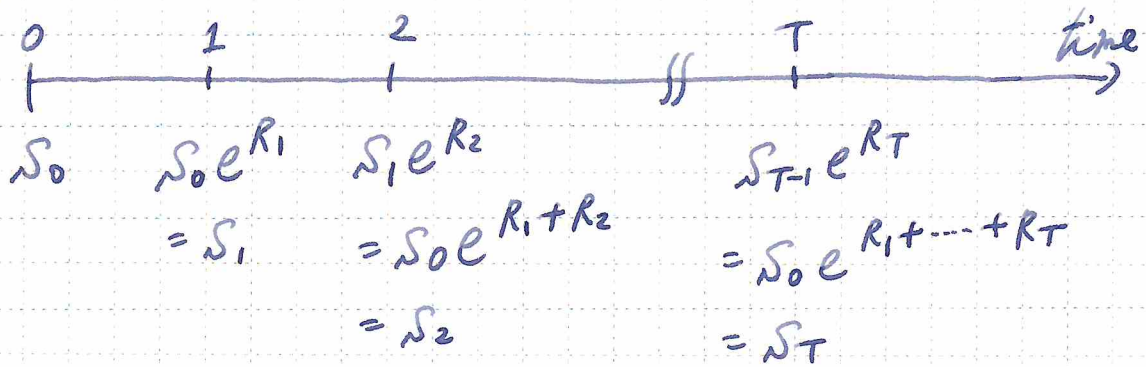 0 1 2 T time
S₀ S₀e^{R₁} S₁e^{R₂} S_{T-1}e^{R_T}
= S₁ = S₀e^{R₁+R₂} = S₀e^{R₁+----+R_T}
= S₂ = S_T